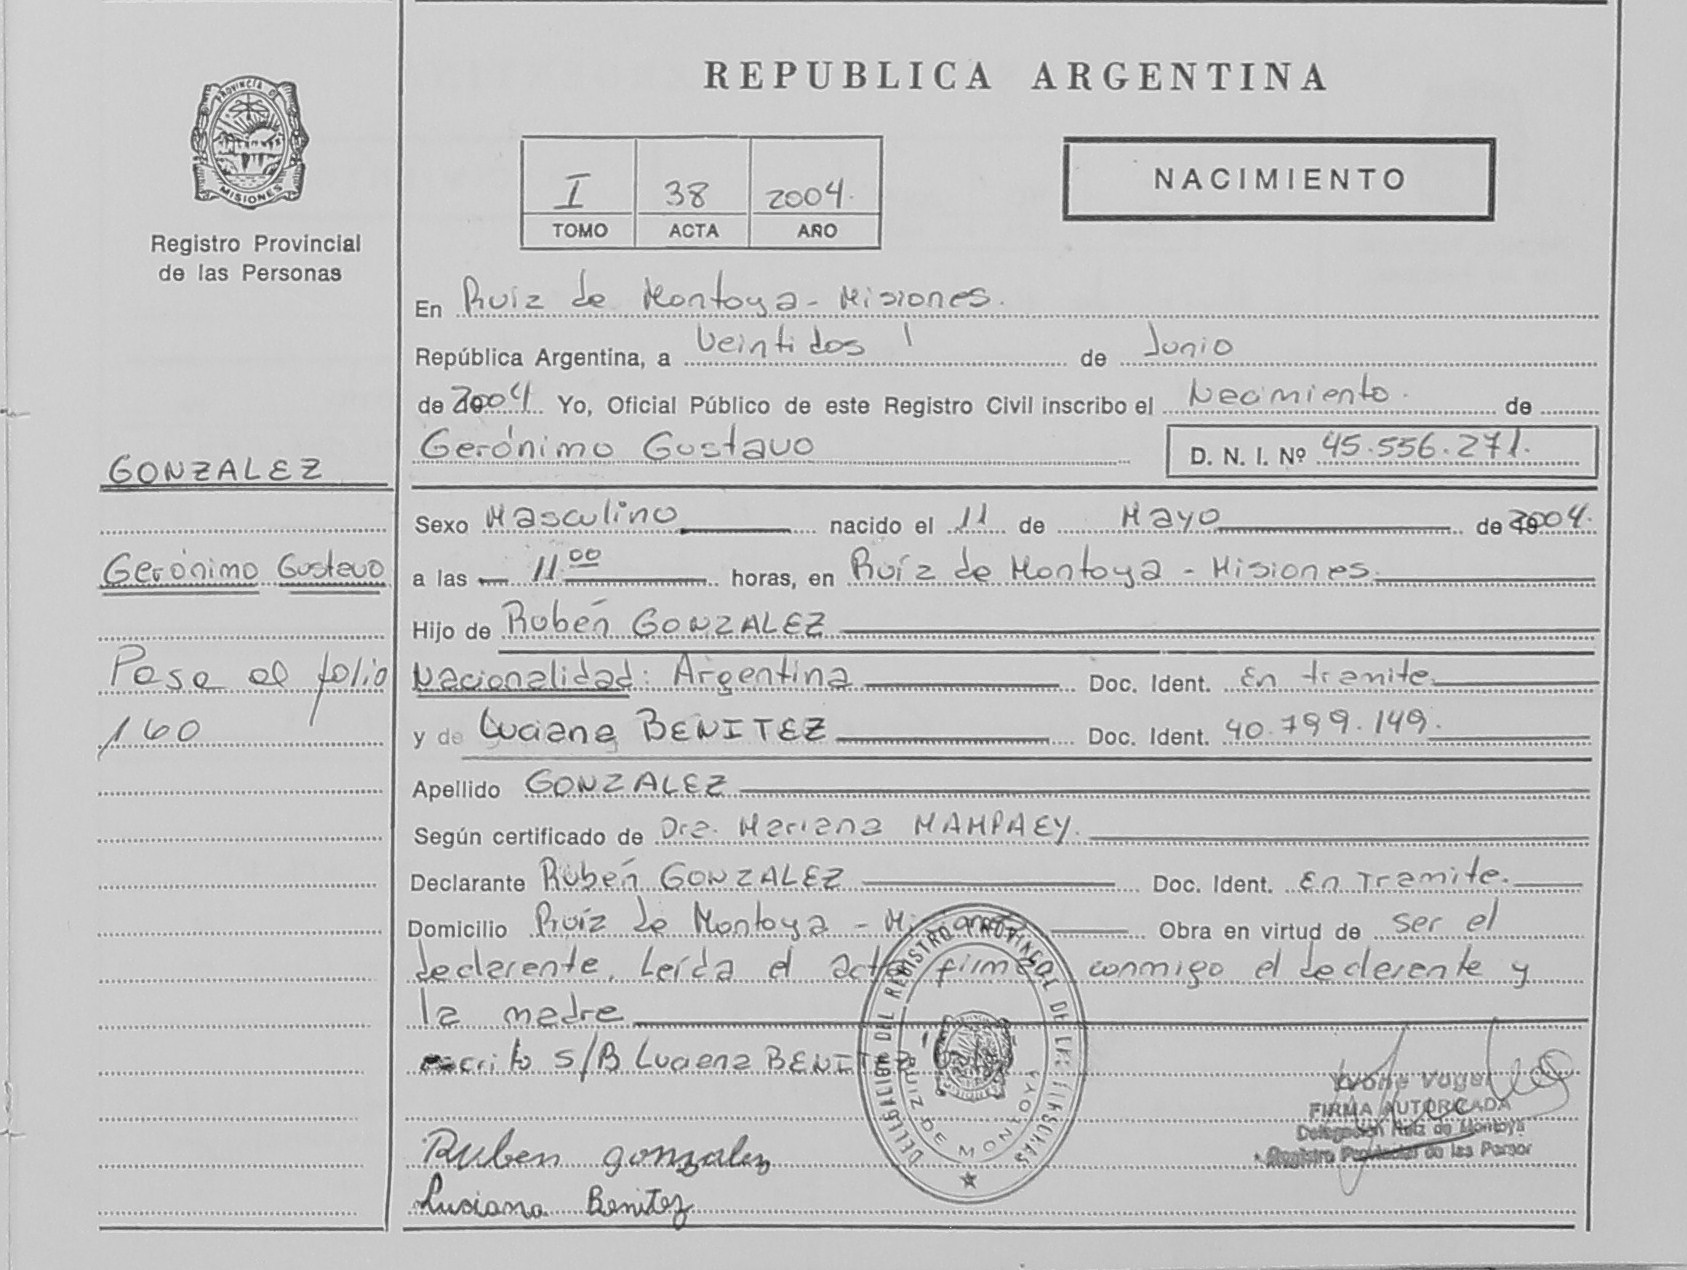 PROVINCIA DE
MISIONES
Registro Provincial
de las Personas
GONZALEZ
Gerónimo Gustavo
Pasa al folio
160
REPUBLICA ARGENTINA
I 38 2004.
TOMO ACTA AÑO
NACIMIENTO
En Ruíz de Montoya - Misiones.
República Argentina, a Veintidos de Junio
de 2004 Yo, Oficial Público de este Registro Civil inscribo el Nacimiento. de
Gerónimo Gustavo D. N. I. Nº 45.556.271.
Sexo Masculino nacido el 11 de Mayo de 2004.
a las 11.00 horas, en Ruíz de Montoya - Misiones.
Hijo de Rubén GONZALEZ
Nacionalidad: Argentina Doc. Ident. en tramite.
y de Luciana BENITEZ Doc. Ident. 40.799.149.
Apellido GONZALEZ
Según certificado de Dra. Mariana MAMPAEY.
Declarante Rubén GONZALEZ Doc. Ident. en tramite.
Domicilio Ruíz de Montoya - Misiones Obra en virtud de ser el
declarante. Leída el acta firman conmigo el declarante y
la madre
escrito S/B Luciana BENITEZ
Ruben gonzalez
Lusiana Benitez
DELEGACION DEL REGISTRO PROVINCIAL DE LAS PERSONAS
RUIZ DE MONTOYA
Ivone Vogel
FIRMA AUTORIZADA
Delegación Ruiz de Montoya
Registro Provincial de las Person